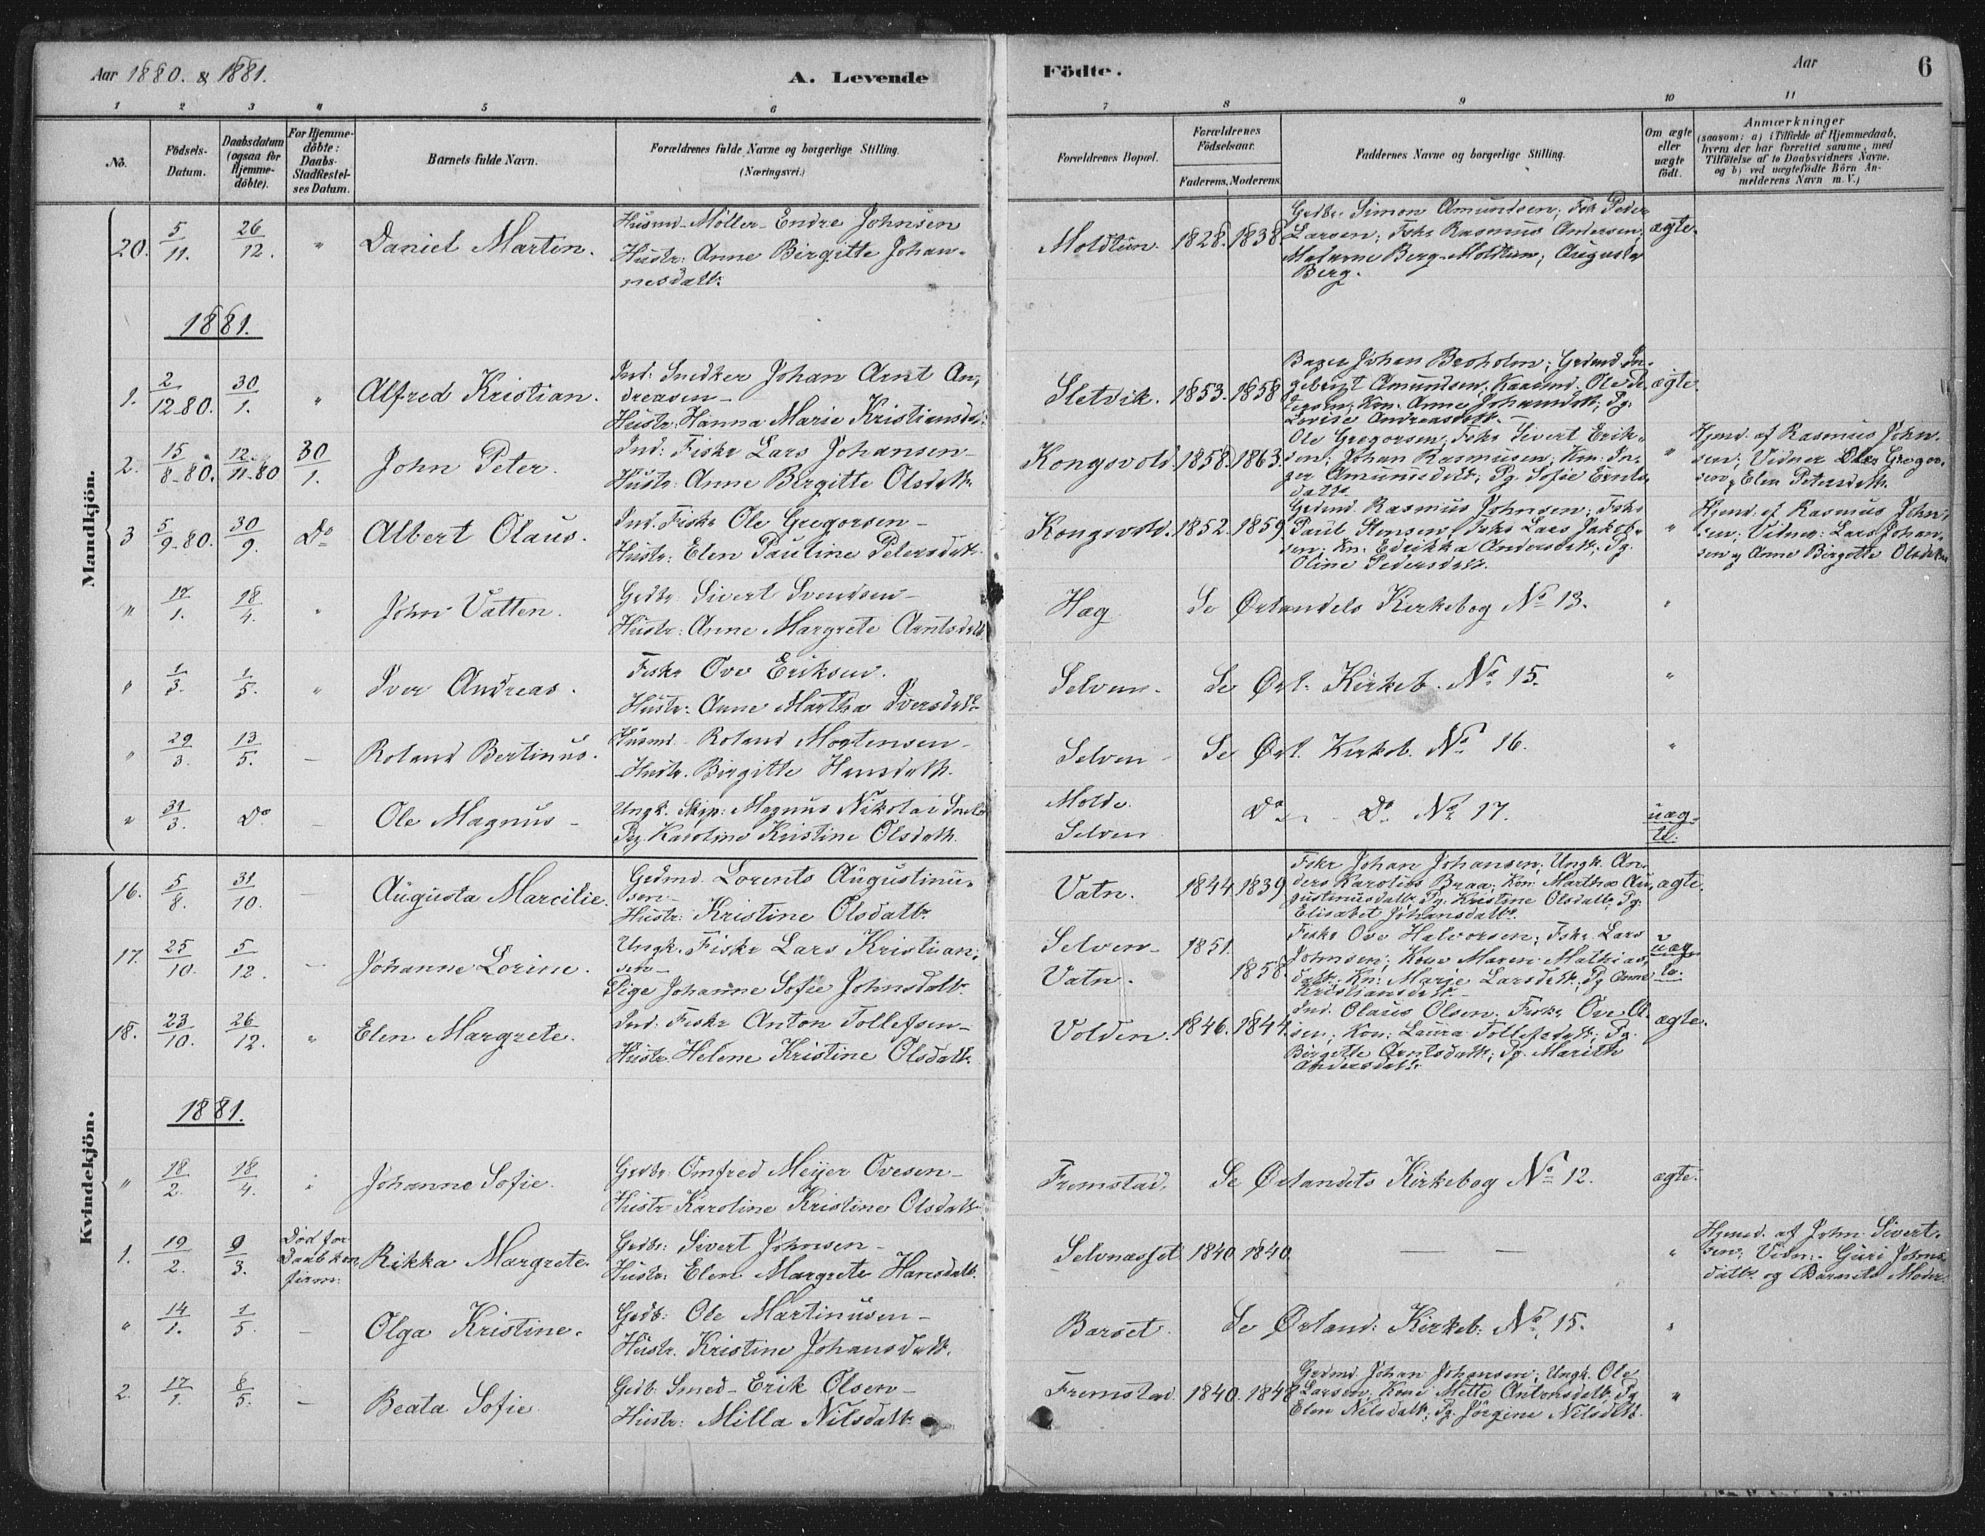 Aar 1880. & 1881.
A. Levende
Födte.
Aar
6
1 2 3 4 5 6 7 8 9 10 11
No.
Födsels-Datum.
Daabsdatum (ogsaa for Hjemme-döbte).
For Hjemme-döbte: Daabs-Stadfæstel-ses Datum.
Barnets fulde Navn.
Forældrenes fulde Navne og borgerlige Stilling.
(Næringsvei.)
Forældrenes Bopæl.
Forældrenes Födselsaar.
Faderens. Moderens.
Faddernes Navne og borgerlige Stilling.
Om ægte eller uægte födt.
Anmærkninger
(saasom: a) i Tilfælde af Hjemmedaab, hvem der har forrettet samme, med Tilföielse af to Daabsvidners Navne, og b) ved uægtefödte Börn An-melderens Navn m. V.)
Mandkjön.
20. 5/11. 26/12. " Daniel Marten. Husmd - Möller - Endre Johnsen
Hustr: Anne Birgitte Johan-
nesdatt:
Moldtun. 1828. 1838.
Gedbr. Simon Amundsen; Fsk Peder
Larsen; Fskr Rasmus Andersen;
Berg - Moldtun; Augusta
Berg.
ægte.
1881.
1. 2/12-80. 30/1. " Alfred Kristian. Ind: Snedker Johan Arnt An-
dreasen -
Hustr: Hanna Marie Kristiansd:
Sletvik. 1853. 1858
Johan Broholm; Grdmd. In-
gebrigt Amundsen; Kaarmd. Ole Pe-
dersen; Kon. Anne Johansdatt; Pg.
Lovise Andreasdatt.
ægte.
2. 15/8-80. 12/11-80 30/1. John Peter. Ind: Fiskr Lars Johansen -
Hustr: Anne Birgitte Olsdatt.
Kongsvold. 1858. 1863.
Ole Gregorsen; Fskr Sivert Erik-
sen; Johan Rasmusen; Kon: In-
ger Amundsdatt; Pg. Sofie Ernts-
datt.
"
Hjmd. af Rasmus John-
sen; Vidner Ole Gregor-
sen, Elen Petersdatt.
3 5/9-80. 30/9. Do Albert Olaus. Ind. Fiskr Ole Gregorsen -
Hustr: Elen Pautine Petersdatt.
Kongsvold. 1852. 1859.
Grdmd. Rasmus Johnsen; Fskr
Paul Stensen; Fskr Lars Jakob-
sen; Kn. Edrikka Andersdatt; Pg.
Oline Pedersdatt.
"
Hjmd. af Rasmus John-
sen; Vidner: Lars Johan-
sen og Anne Birgitte Olsdatter
" 17/1. 18/4. " John Vatten. Grdbr Sivert Svendsen -
Hustr: Anne Margrete Arntsdatt
Hag. Se Ørlandets Kirkebog No 13. "
" 1/3. 1/5. " Iver Andreas. Fiskr Ove Eriksen.
Hustr: Anne Martha Iversdatt
Selven. Se Ørl. Kirkeb. No 15. "
" 29/3. 13/5. - Roland Bertinus. Husmd - Roland Mortensen -
Hustr. Birgitte Hansdatt.
Selven - Se Ørl. Kirkeb. No 16. "
" 31/3. Do. - Ole Magnus - Ungk. Skip: Magnus Nikolai
Pg. Karoline Kristine Olsdatt.
Molde.
Selven.
Do - Do. No 17. uæg-
te.
Kvindekjön.
16. 5/8. 31/10. - Augusta Marcilie. Grdmd. Lorents Augustinu-
sen -
Hustr: Kristine Olsdatt.
Vatn. 1844. 1839
Fskr Johan Johansen; Ungk. An-
ders Karolius Braa; Kon: Martha Au-
gustinusdatt; Pg. Kristine Olsdatt; Pg.
Elisabet Johansdatt.
ægte.
17. 25/10. 5/12. - Johanne Lorine. Ungk. Fiskr Lars Kristian-
sen -
Pige Johanne Sofie Johnsdatt.
Selven - 1851.
Vatn. 1858.
Fiskr Ove Halvorsen; Fskr. Lars
Johnsen; Kone Maren Mathias-
datt; Kn: Marie Larsdatt; Pg Anne
Kristiansdatt. -
uæg-
te.
18. 23/10. 26/12. " Elen Margrete. Ind: Fiskr Anton Tollefsen -
Hustr. Helene Kristine Olsdatt.
Volden. 1846. 1844.
Ind. Olaus Olsen; Fiskr Ove Ol-
sen; Kon: Laura Tollefsdatt; Pg.
Birgitte Arntsdatt; Pg. Marith
Andersdatt.
ægte.
1881.
" 18/2. 18/4. " Johanne Sofie. Grdbr: Omfred Meyer Ovesen -
Hustr Karoline Kristine Olsdatt.
Fremstad. Se Ørlandets Kirkebog No 12. ægte.
1. 19/2. 9/3. Död för
Daab kon
firm: Rikka Margrete. Grdbr: Sivert Johnsen -
Hustr: Elen Margrete Hansdatt.
Selvnæsset 1840. 1840. - - "
Hjmd. af John Sivert-
sen; Vidn: Guri Johns-
datt. og Barnets Moder.
" 14/1. 1/5. - Olga Kristine. Grdb: Ole Martinusen -
Hustr. Kristine Johansdatt.
Barset. Se Ørland: Kirkeb: No 15. "
2. 17/1. 8/5. - Beata Sofie. Grdb. Smed - Erik Olsen -
Hustr: Milla Nilsdatt.
Fremstad. 1840. 1848
Grdmd. Johan Johansen; Ungk. Ole
Larsen; Kone Mette Antonsdatt; Pg
Elen Nilsdatt; Pg. Jörgine Nilsdatt.
"